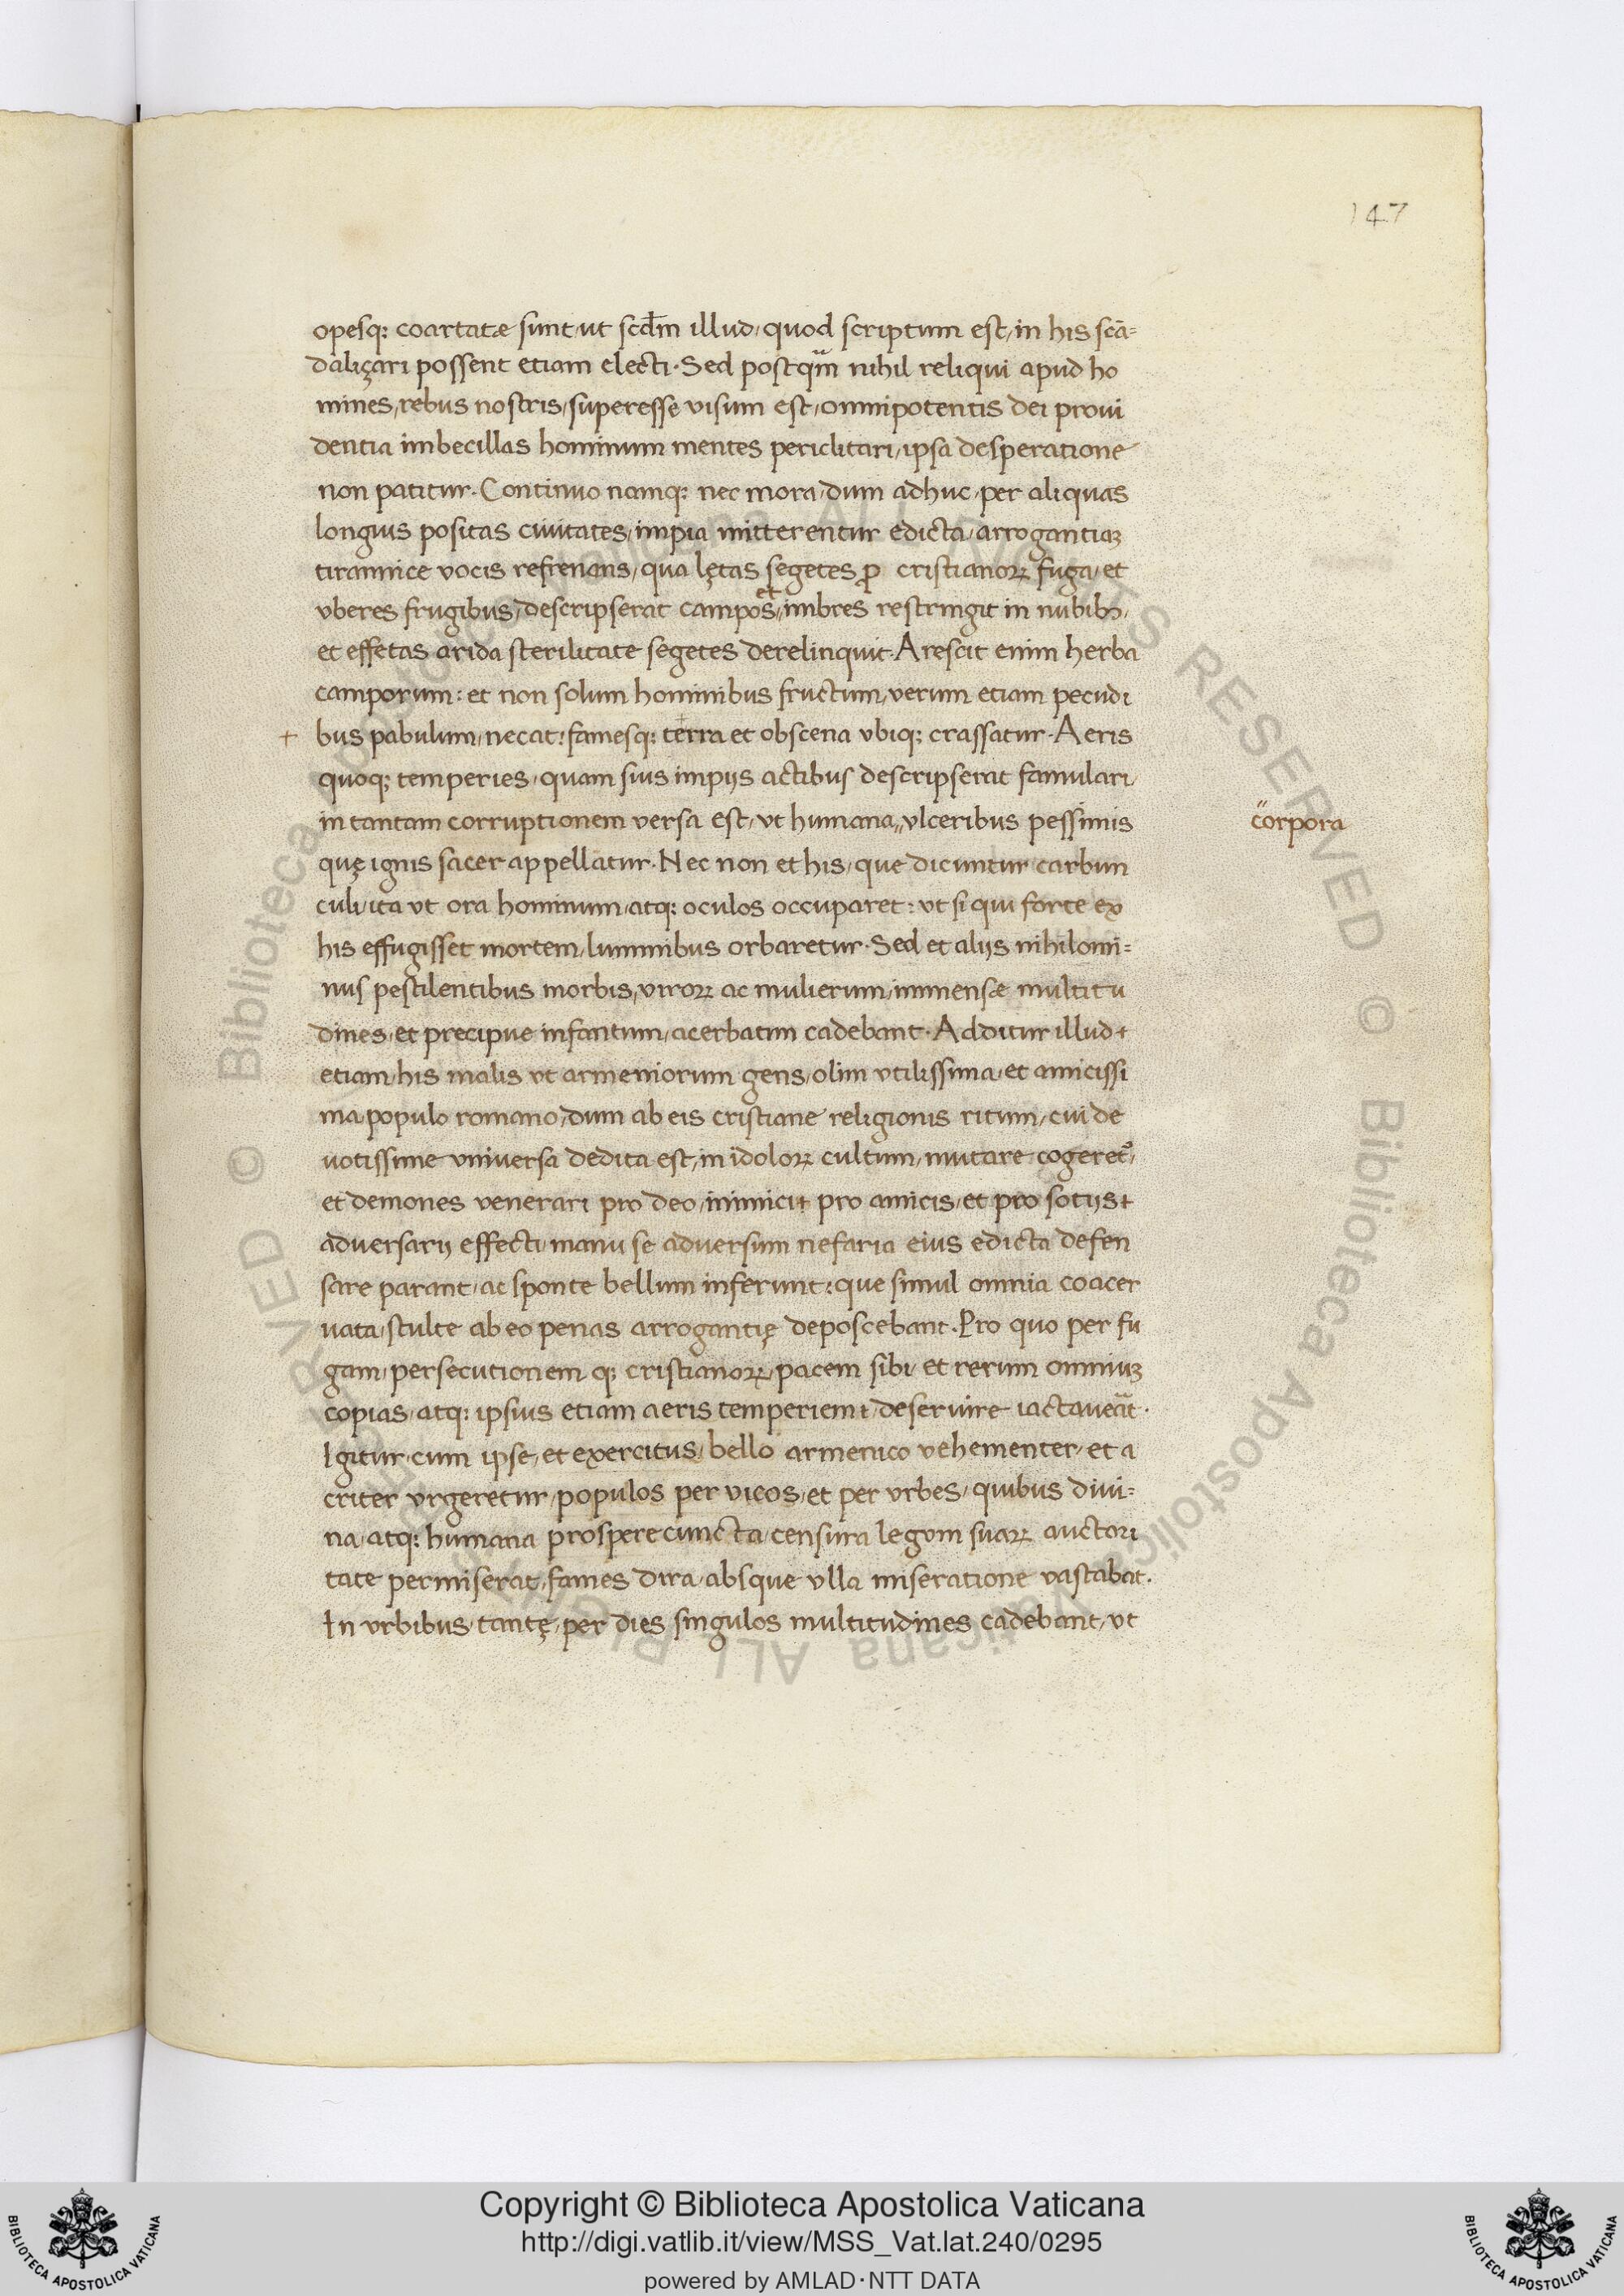 147
opesq; coartatæ sunt, ut scdm̄ illud, quod scriptum est, in his scā=
daliçari possent etiam electi. Sed postqm̄ nihil reliqui apud ho
mines, rebus nostris, superesse visum est, omnipotentis dei proui
dentia imbecillas hominum mentes periclitari, ipsa desperatione
non patitur. Continuo namq; nec mora, dum adhuc, per aliquas
longius positas ciuitates, impia mitterentur edicta, arrogantiaꝫ
tirannice vocis refrenans, qua lętas segetes ꝓ cristianoꝝ fuga, et
vberes frugibus, descripserat campos, et imbres restringit in nubibꝫ,
et effetas arida sterilitate segetes derelinquit. Arescit enim herba
camporum: et non solum hominibus fructum, verum etiam pecudi
+ bus pabulum, necat: famesq; terra et obscena vbiq; crassatur. Aeris
quoq; temperies, quam suis impijs actibus descripserat famulari,
in tantam corruptionem versa est, vt humana,, vlceribus pessimis
corpora
quę ignis sacer appellatur. Nec non et his, que dicuntur carbun
culi, ita vt ora hominum, atq; oculos occuparet: vt si qui forte ex
his effugisset mortem, luminibus orbaretur. Sed et alijs nihilomi=
nus pestilentibus morbis, viroꝝ ac mulierum, immensæ multitu
dines, et precipue infantum, acerbatim cadebant. Additur illud
etiam, his malis vt armeniorum gens, olim vtilissima, et amicissi
ma populo romano, dum ab eis cristiane religionis ritum, cui de
uotissime vniversa dedita est, in idoloꝝ cultum, mutare cogeret᷒,
et demones venerari pro deo, inimici pro amicis, et pro sotijs
adversarij effecti, manu se adversum nefaria eius edicta defen
sare parant, ac sponte bellum inferunt: que simul omnia coacer
uata, stulte ab eo penas arrogantię deposcebant. Pro quo per fu
gam, persecutionem q; cristianoꝝ, pacem sibi, et rerum omniuꝫ
copias, atq; ipsius etiam aeris temperiem, deseruire iactaueat.
Igitur, cum ipse, et exercitus, bello armenico vehementer, et a
criter vrgeretur, populos per vicos, et per vrbes, quibus diui=
na, atq; humana prospere cuncta, censura legum suaꝝ auctori
tate permiserat, fames dira, absque vlla miseratione vastabat.
In vrbibus, tantę, per dies singulos multitudines cadebant, vt
Copyright © Biblioteca Apostolica Vaticana
http://digi.vatlib.it/view/MSS_Vat.lat.240/0295
powered by AMLAD·NTT DATA
BIBLIOTECA APOSTOLICA VATICANA
BIBLIOTECA APOSTOLICA VATICANA